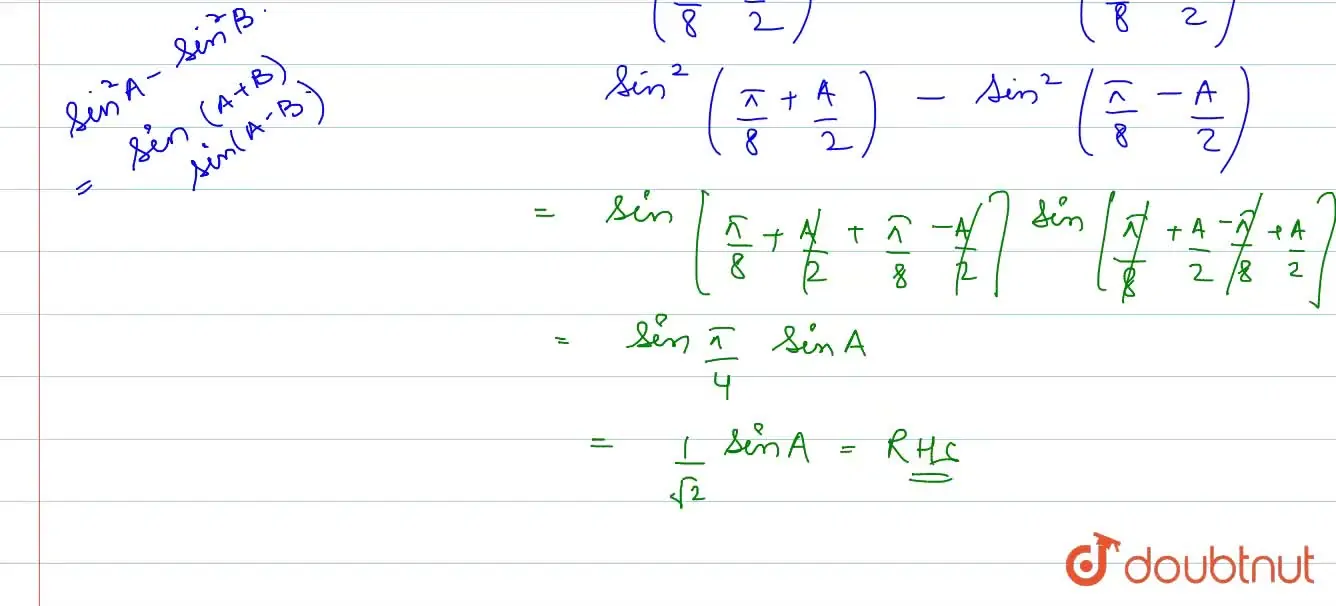 sin²A - sin²B.
= sin (A+B)
sin(A-B)
(π/8 A/2) (π/8 A/2)
sin² (π/8 + A/2) - sin² (π/8 - A/2)
= sin [π/8 + A/2 + π/8 - A/2] sin [π/8 + A/2 - π/8 + A/2]
= sin π/4 sin A
= 1/√2 sin A = RHS
doubtnut